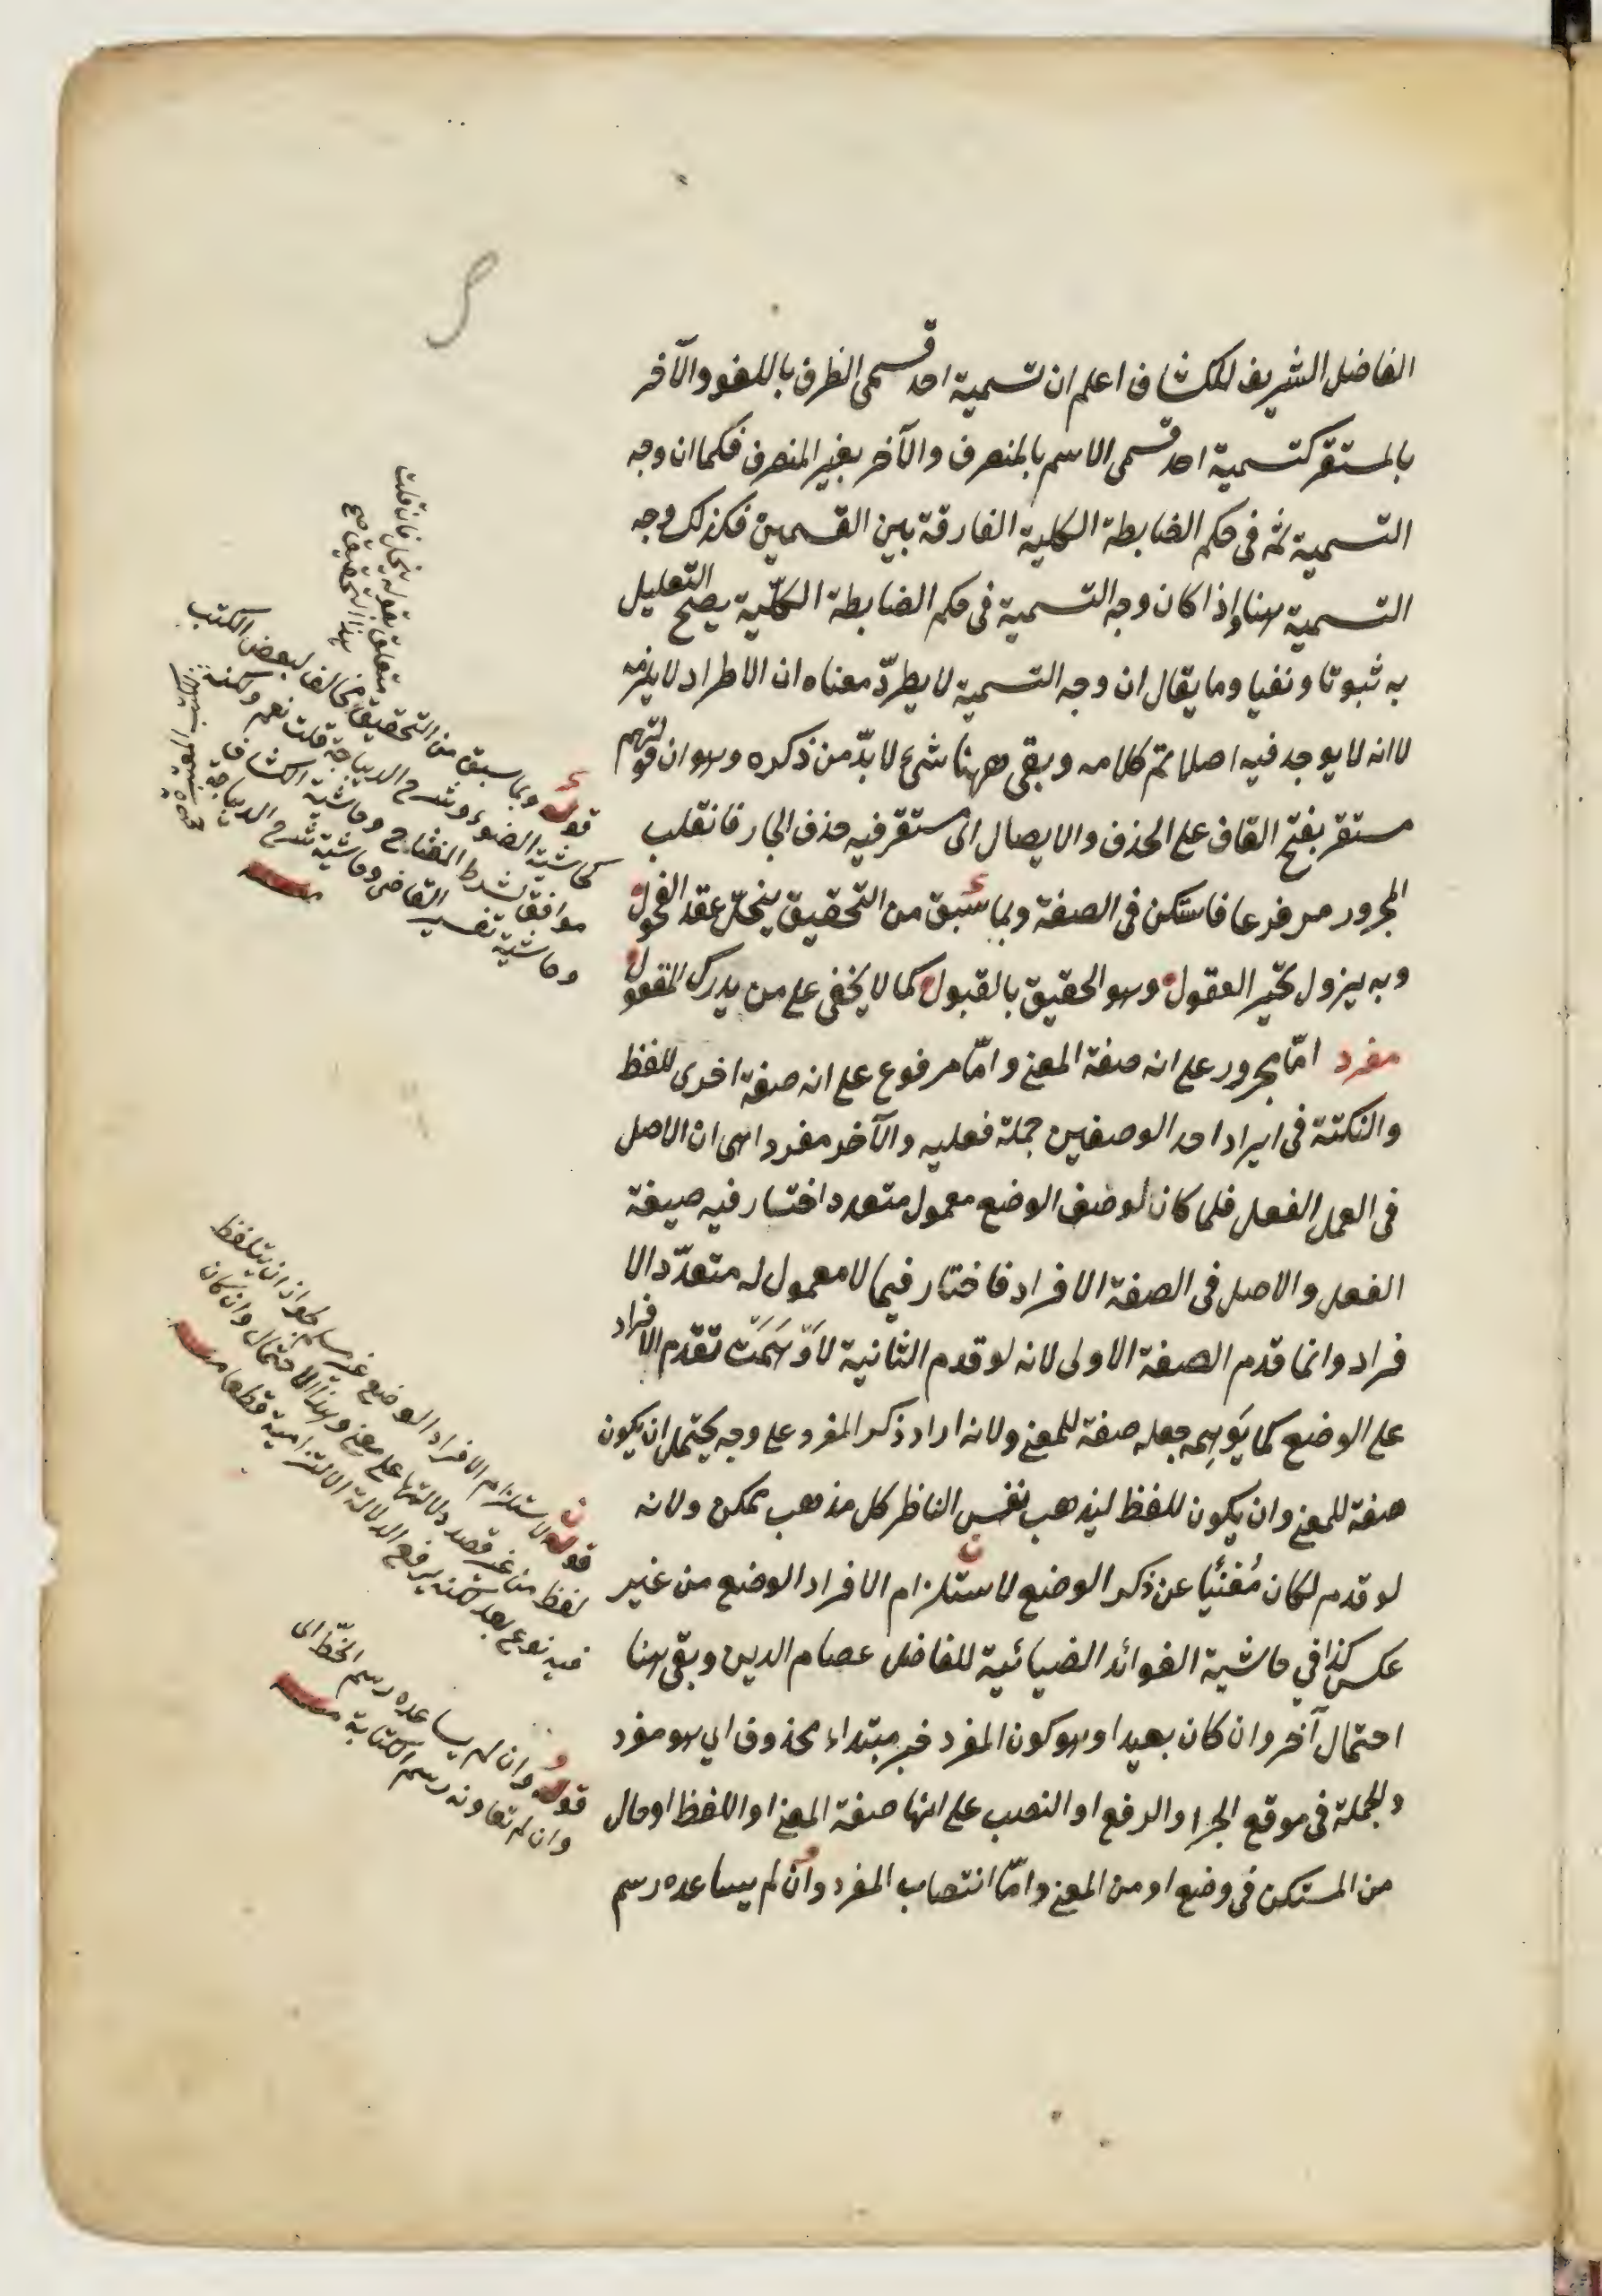 الفاضل الشريف للكشاف اعلم ان تسمية احد قسمى الظرف باللغو والآخر
بالمستقر كتسمية احد قسمى الاسم بالمنصرف والآخر بغير المنصرف فكما ان وجه
التسمية ثمه فى حكم الضابطة الكلية الفارقة بين القسمين فكذلك وجه
التسمية هنا واذا كان وجه التسمية فى حكم الضابطة الكلّية يصحّ التعليل
به ثبوتا ونفيا وما يقال ان وجه التسمية لا يطرّد معناه ان الاطراد لا يلزمه
لا انه لا يوجد فيه اصلا تمّ كلامه وبقى ههنا شىء لا بدّ من ذكره وهو ان قولهم
مستقر بفتح القاف على الحذف والايصال اى مستقر فيه حذف الجار فانقلب
المجرور مرفوعا فاستكن فى الصفة وبما سبق من التحقيق ينحلّ عقد الفحول
وبه يزول تحيّر العقول وهو الحقيق بالقبول كما لا يخفى على من يدرك المقول
مفرد امّا مجرور على انه صفة المعنى وامّا مرفوع على انه صفة اخرى للفظ
والنكتة فى ايراد احد الوصفين جملة فعليه والآخر مفردا هى ان الاصل
فى العمل الفعل فلما كان لوصف الوضع معمول متعدد اختار فيه صيغة
الفعل والاصل فى الصفة الافراد فاختار فيما لا معمول له متعدّد الا
فراد وانما قدم الصفة الاولى لانه لو قدم الثانية لاَوْهَمَتْ تقدم الافراد
على الوضع كما يَوهِمه جعله صفة للمعنى ولانه اراد ذكر المفرد على وجه يحتمل ان يكون
صفة للمعنى وان يكون للفظ ليذهب نفس الناظر كل مذهب ممكن ولانه
لو قدم لكان مُغنيًا عن ذكر الوضع لاستلزام الافراد الوضع من غير
عكس كذا في حاشية الفوائد الضيائية للفاضل عصام الدين وبقى هنا
احتمال آخر وان كان بعيدا وهو كون المفرد خبر مبتداء محذوف اي هو مفرد
والجملة فى موقع الجر او الرفع او النصب على انها صفة المعنى او اللفظ او حال
من المستكن فى وضع او من المعنى وامّا انتصاب المفرد وان لم يساعده رسم
قوله وبما سبق من التحقيق مخالف لبعض الكتب
كحاشية الضوء وشرح الديباجة قلت نعم ولكنه
موافق لشرح المفتاح وحاشية الكشاف
وحاشية تفسير القاضى وحاشية شرح الديباجة
متعلق بقوله ينحل فان قلت
هذا التحقيق
قوله لاستلزام الافراد الوضع غير مسلم لجواز ان يتلفظ
لفظ من غير قصد دلالتها على معنى وهذا الاحتمال وان كان
فيه نوع بعد لكنه يرفع الدلالة الالتزامية قطعا منه
قوله وان لم يساعده رسم الخطّ اى
وان لم تعاونه رسم الكتابة منه